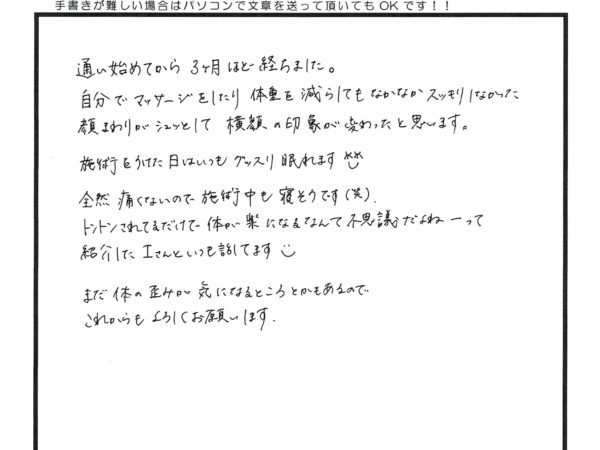 手書きが難しい場合はパソコンで文章を送って頂いてもOKです！！
通い始めてから 3ヶ月ほど経ちました。
自分で マッサージをしたり 体重を減らしても なかなか スッキリしなかった
顔まわりが シュッとして 横顔の印象が変わったと思います。
施術をうけた日はいつも グッスリ眠れます
全然 痛くないので 施術中も 寝そうです(笑).
トントンされてるだけで 体が楽になるなんて 不思議だよねーって
紹介した Iさんといつも話してます
まだ 体の歪みが 気になるところとかもあるので
これからも よろしくお願いします.